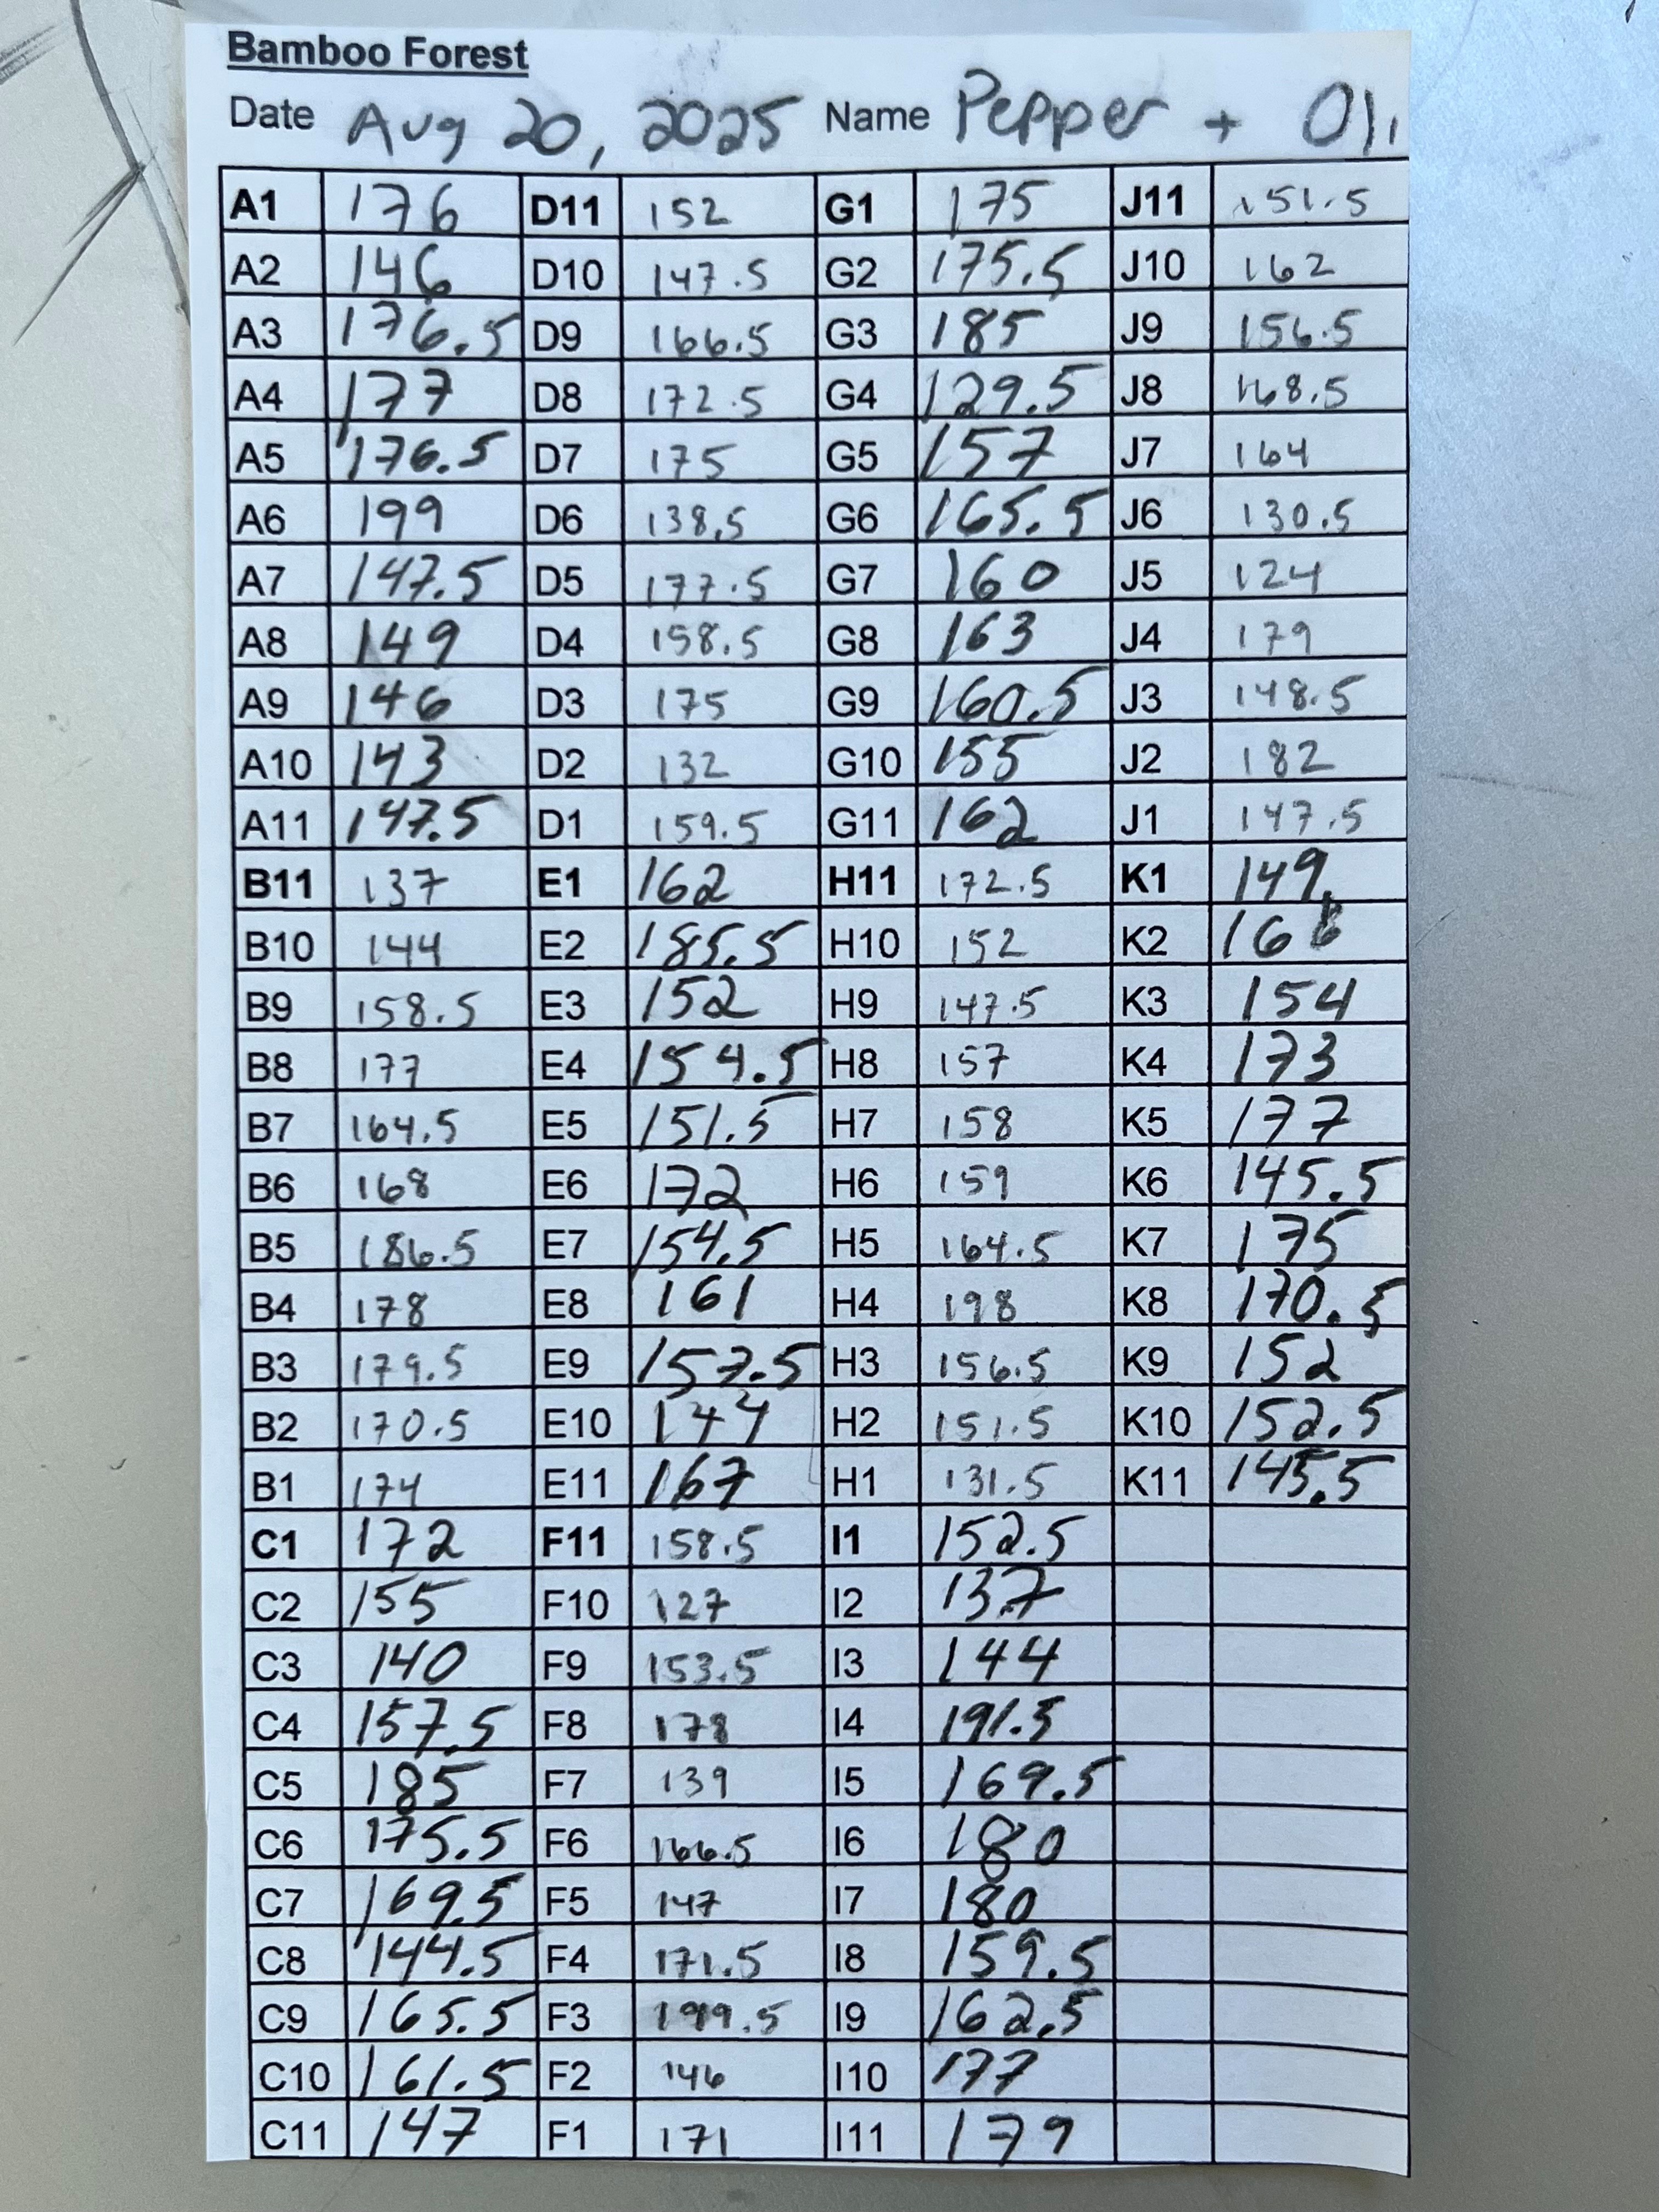 Bamboo Forest
Date Aug 20, 2025 Name Pepper + Oli
A1 176 D11 152 G1 175 J11 151.5
A2 146 D10 147.5 G2 175.5 J10 162
A3 176.5 D9 166.5 G3 185 J9 156.5
A4 177 D8 172.5 G4 129.5 J8 168.5
A5 176.5 D7 175 G5 157 J7 164
A6 199 D6 138.5 G6 165.5 J6 130.5
A7 147.5 D5 177.5 G7 160 J5 124
A8 149 D4 158.5 G8 163 J4 179
A9 146 D3 175 G9 160.5 J3 148.5
A10 143 D2 132 G10 155 J2 182
A11 147.5 D1 159.5 G11 162 J1 147.5
B11 137 E1 162 H11 172.5 K1 149
B10 144 E2 185.5 H10 152 K2
B9 158.5 E3 152 H9 147.5 K3 154
B8 177 E4 154.5 H8 157 K4 173
B7 164.5 E5 151.5 H7 158 K5 177
B6 168 E6 172 H6 159 K6 145.5
B5 186.5 E7 154.5 H5 164.5 K7 175
B4 178 E8 161 H4 198 K8 170.5
B3 179.5 E9 157.5 H3 156.5 K9 152
B2 170.5 E10 144 H2 151.5 K10 152.5
B1 174 E11 167 H1 131.5 K11 145.5
C1 172 F11 158.5 I1 152.5
C2 155 F10 127 I2 137
C3 140 F9 153.5 I3 144
C4 157.5 F8 178 I4 191.5
C5 185 F7 139 I5 169.5
C6 175.5 F6 166.5 I6 180
C7 169.5 F5 147 I7 180
C8 144.5 F4 171.5 I8 159.5
C9 165.5 F3 I9 162.5
C10 161.5 F2 146 I10 177
C11 147 F1 171 I11 179